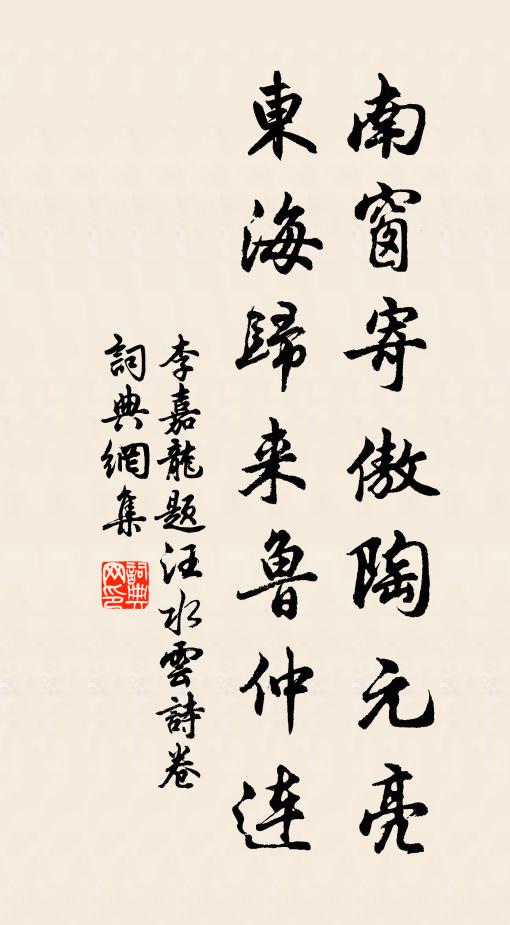 南窗寄傲陶元亮
東海歸来魯仲連
李嘉龍題汪水雲詩卷
詞典網集
詞典网印